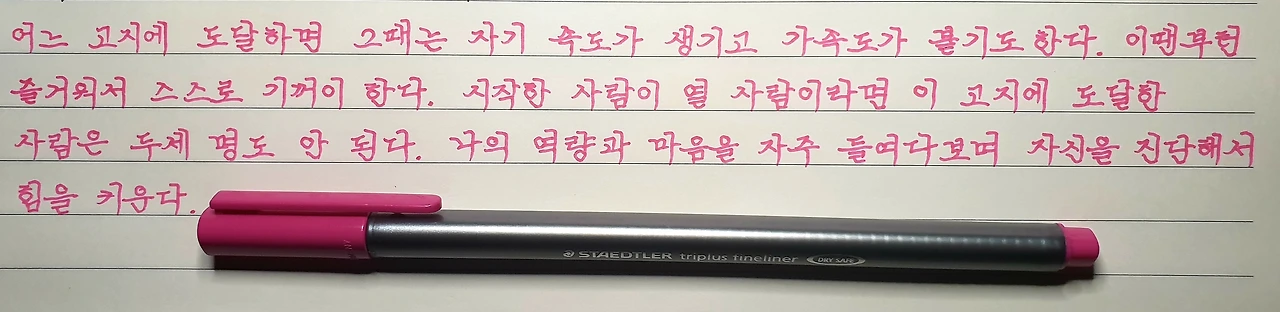 어느 고지에 도달하면 그때는 자기 속도가 생기고 가속도가 붙기도 한다. 이땐부턴
즐거워서 스스로 기꺼이 한다. 시작한 사람이 열 사람이라면 이 고지에 도달한
사람은 두세 명도 안 된다. 나의 역량과 마음을 자주 들여다보며 자신을 진단해서
힘을 키운다.
STAEDTLER triplus fineliner DRY SAFE